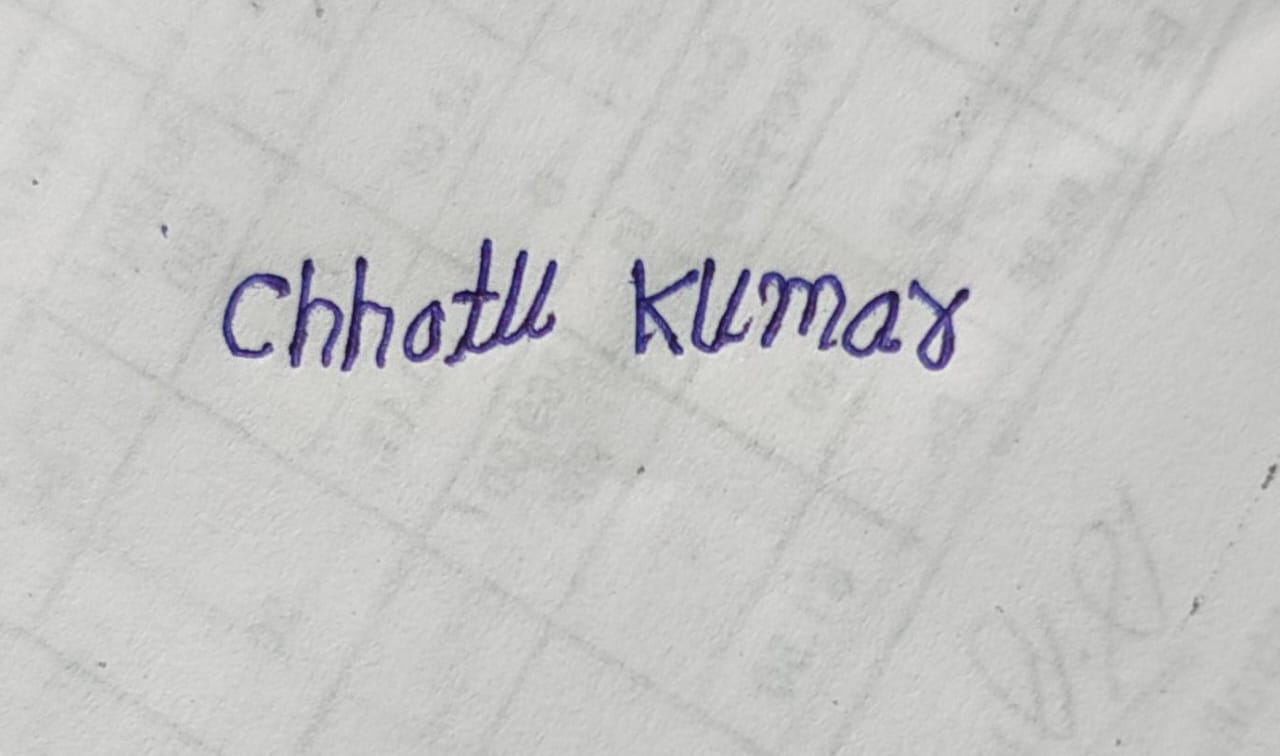 Chhotu Kumar